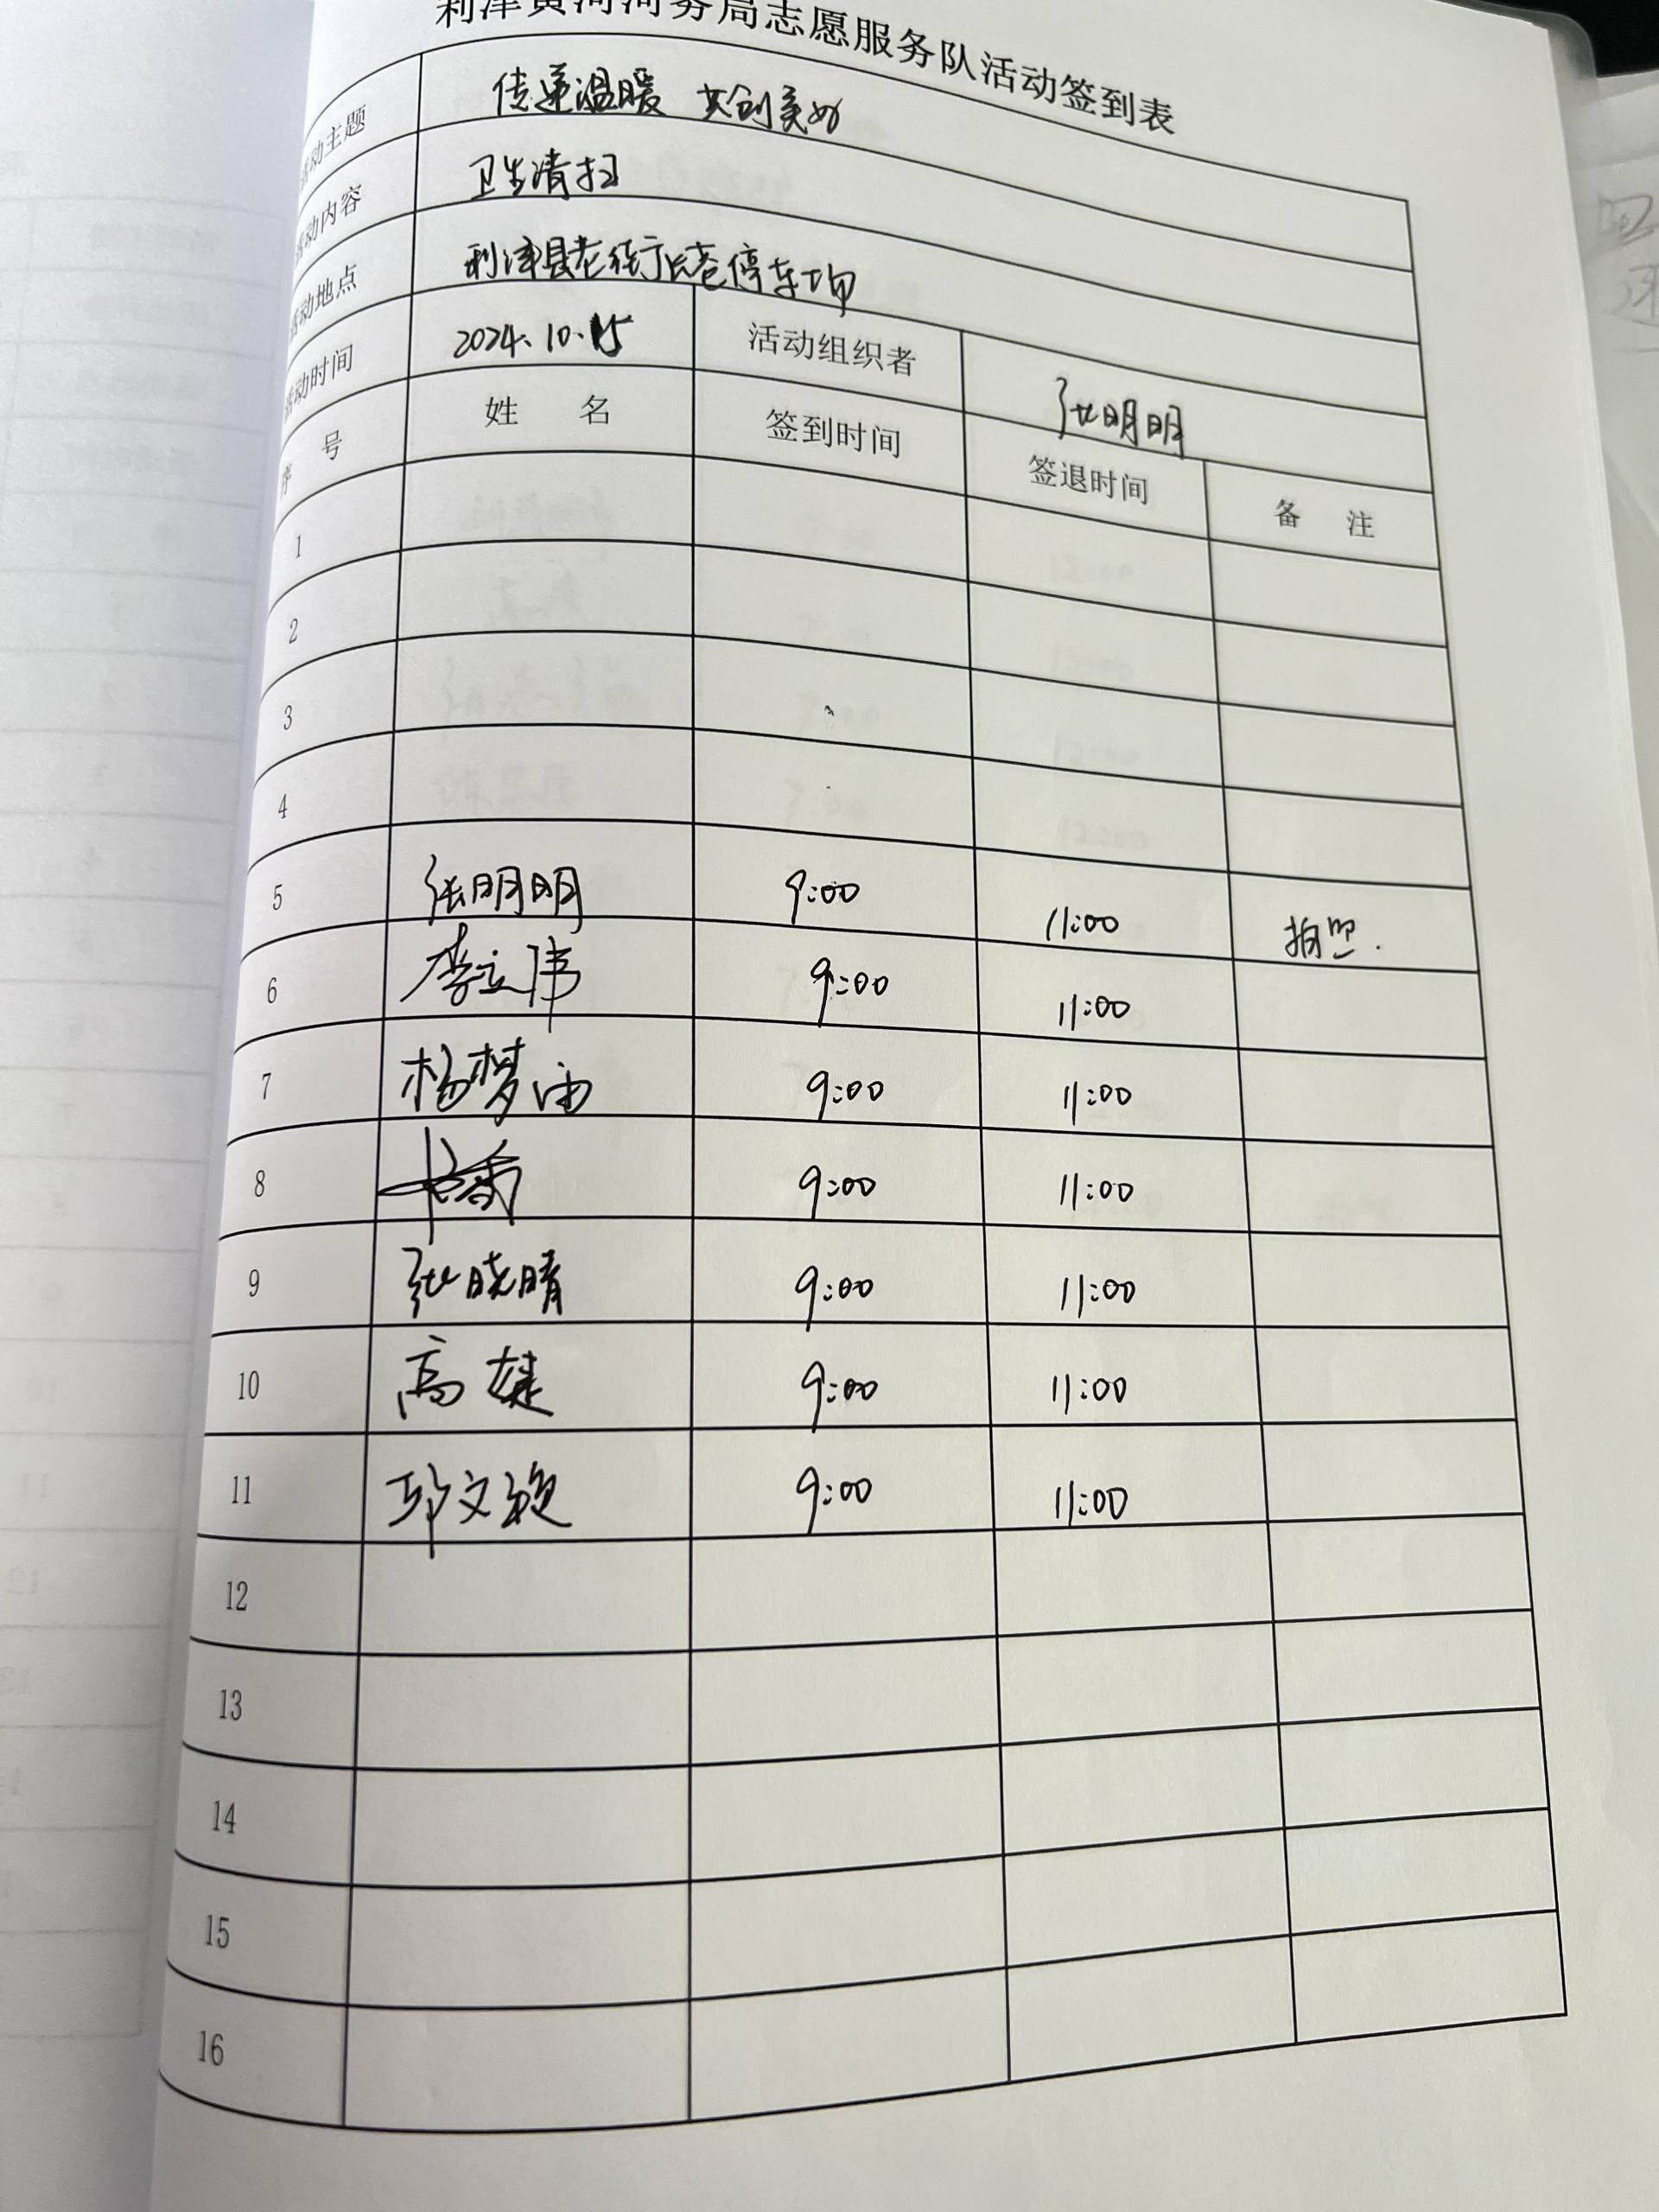 利津黄河河务局志愿服务队活动签到表
活动主题 传递温暖 共创美好
活动内容 卫生清扫
活动地点 利津县老街长巷停车场
活动时间 2024.10.15 活动组织者 张明明
序 号 姓 名 签到时间 签退时间 备 注
1
2
3
4
5 张明明 9:00 11:00 拍照.
6 李立伟 9:00 11:00
7 杨梦雨 9:00 11:00
8 9:00 11:00
9 张晓晴 9:00 11:00
10 高婕 9:00 11:00
11 邱文 9:00 11:00
12
13
14
15
16